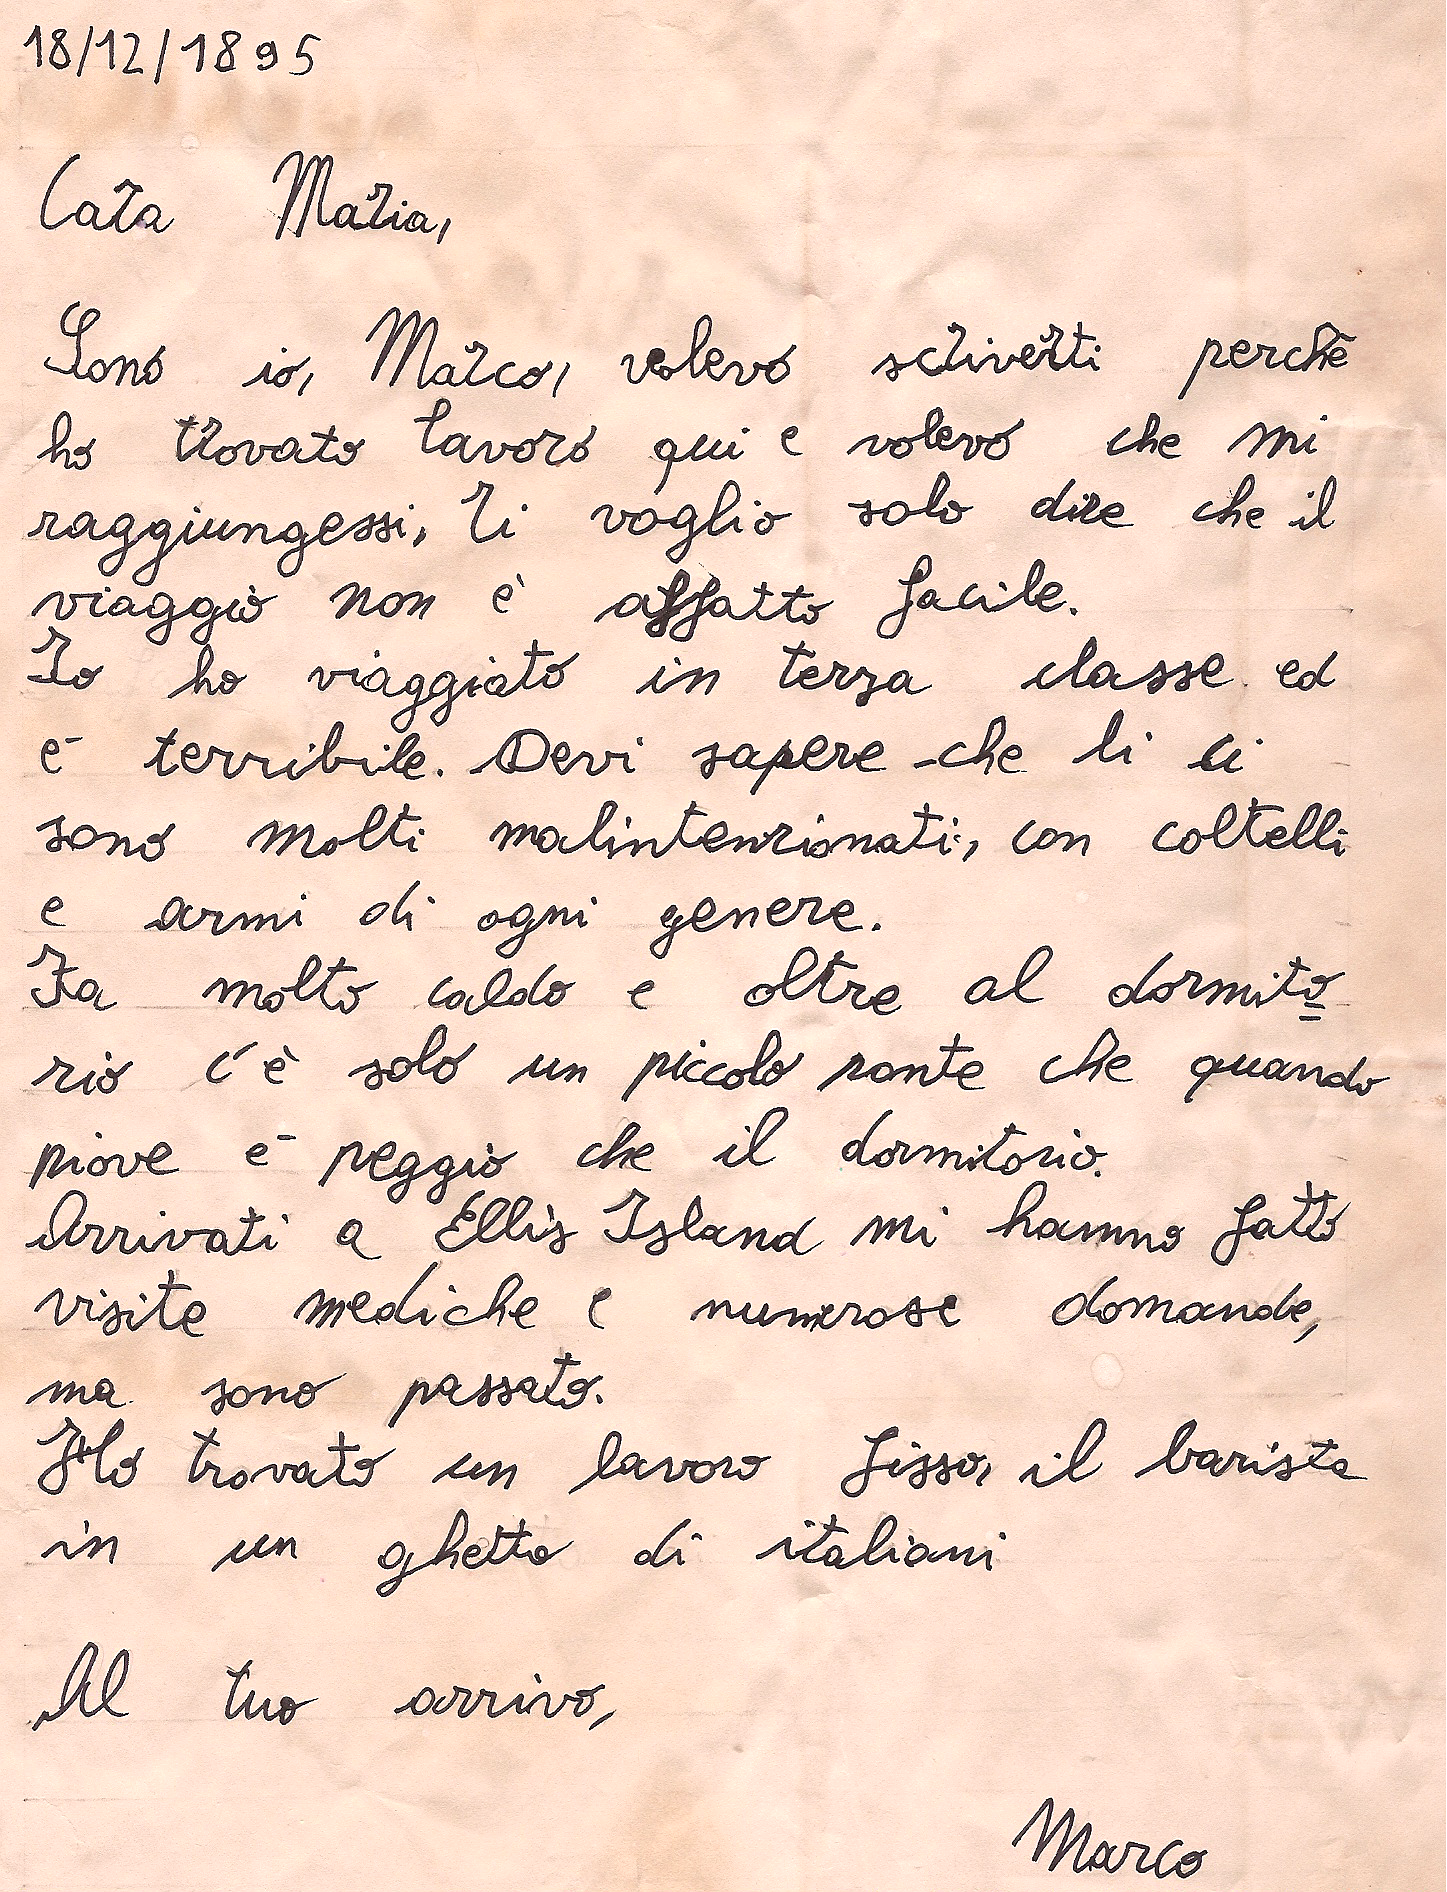 18/12/1895
Cara Maria,
Sono io, Marco, volevo scriverti perchè
ho trovato lavoro qui e volevo che mi
raggiungessi, Ti voglio solo dire che il
viaggio non è affatto facile.
Io ho viaggiato in terza classe ed
è terribile. Devi sapere che li ci
sono molti malintenzionati, con coltelli
e armi di ogni genere.
Fa molto caldo e oltre al dormito
rio c'è solo un piccolo ponte che quando
piove è peggio che il dormitorio.
Arrivati a Ellis Island mi hanno fatto
visite mediche e numerose domande,
ma sono passato.
Ho trovato un lavoro fisso, il barista
in un ghetto di italiani
Al tuo arrivo,
Marco